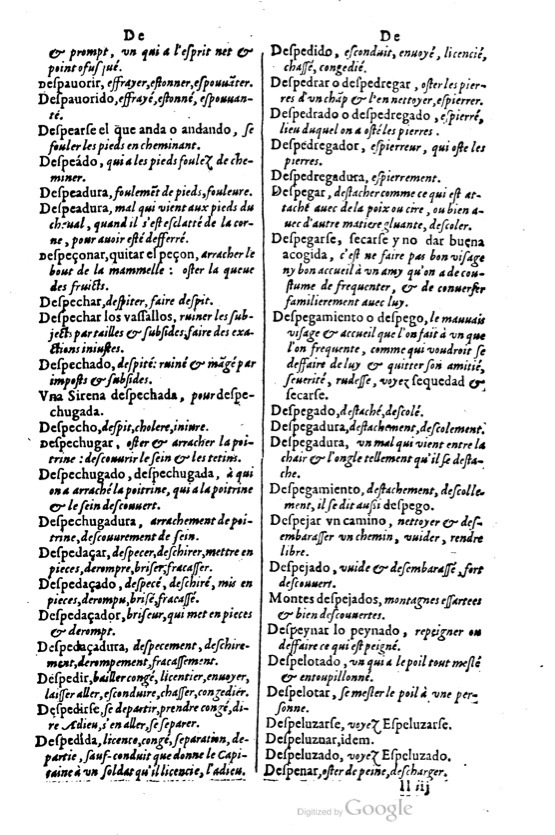 De
& prompt, vn qui a l'esprit net &
point ofusqué.
Despauorir, effrayer, estonner, espouuāter.
Despauorido, effrayé, estonné, espouuan-
té.
Despearse el que anda o andando, se
fouler les pieds en cheminant.
Despeádo, qui a les pieds foulez de che-
miner.
Despeadura, foulemēt de pieds, fouleure.
Despeadura, mal qui vient aux pieds du
cheual, quand il s'est esclatté de la cor-
ne, pour auoir esté defferré.
Despeçonar, quitar el peçon, arracher le
bout de la mammelle: oster la queue
des fruicts.
Despechar, despiter, faire despit.
Despechar los vassallos, ruiner les sub-
jects par tailles & subsides, faire des exa-
ctions iniustes.
Despechado, despité: ruiné & māgé par
imposts & subsides.
Vna Sirena despechada, pour despe-
chugada.
Despecho, despit, cholere, iniure.
Despechugar, oster & arracher la poi-
trine: descouurir le sein & les tetins.
Despechugado, despechugada, à qui
on a arraché la poitrine, qui a la poitrine
& le sein descouuert.
Despechugadura, arrachement de poi-
trine, descouurement de sein.
Despedaçar, despecer, deschirer, mettre en
pieces, derompre, briser, fracasser.
Despedaçado, despecé, deschiré, mis en
pieces, derompu, brisé, fracassé.
Despedaçador, briseur, qui met en pieces
& derompt.
Despedaçadura, despecement, deschire-
ment, derompement, fracassement.
Despedir, bailler congé, licentier, enuoyer,
laisser aller, esconduire, chasser, congedier.
Despedirse, se departir, prendre congé, di-
re Adieu, s'en aller, se separer.
Despedida, licence, congé, separation, de-
partie, sauf-conduit que donne le Capi-
taine à un soldat qu'il licencie, l'adieu.
De
Despedido, esconduit, enuoyé, licencié,
chassé, congedié.
Despedrar o despedregar, oster les pier-
res d'vn chāp & l'en nettoyer, espierrer.
Despedrado o despedregado, espierré,
lieu duquel on a osté les pierres.
Despedregador, espierreur, qui oste les
pierres.
Despedregadura, espierrement.
Despegar, destacher comme ce qui est at-
taché auec de la poix ou cire, ou bien a-
uec d'autre matiere gluante, descoler.
Despegarse, secarse y no dar buena
acogida, c'est ne faire pas bon visage
ny bon accueil à vn amy qu'on a de cou-
stume de frequenter, & de conuerser
familierement auec luy.
Despegamiento o despego, le mauuais
visage & accueil que l'on fait à vn que
l'on frequente, comme qui voudroit se
deffaire de luy & quitter son amitié,
seuerité, rudesse, voyez sequedad &
secarse.
Despegado, destaché, descolé.
Despegadura, destachement, descolement.
Despegadura, vn mal qui vient entre la
chair & l'ongle tellement qu'il se desta-
che.
Despegamiento, destachement, descolle-
ment, il se dit aussi despego.
Despejar vn camino, nettoyer & des-
embarasser vn chemin, vuider, rendre
libre.
Despejado, vuide & desembarassé, fort
descouuert.
Montes despejados, montagnes essartees
& bien descouuertes.
Despeynar lo peynado, repeigner ou
deffaire ce qui est peigné.
Despelotado, vn qui a le poil tout meslé
& entoupillonné.
Despelotar, se mesler le poil à vne per-
sonne.
Despeluzarse, voyez Espeluzarse.
Despeluznar, idem.
Despeluzado, voyez Espeluzado.
Despenar, oster de peine, descharger.
ll iij
Digitized by Google